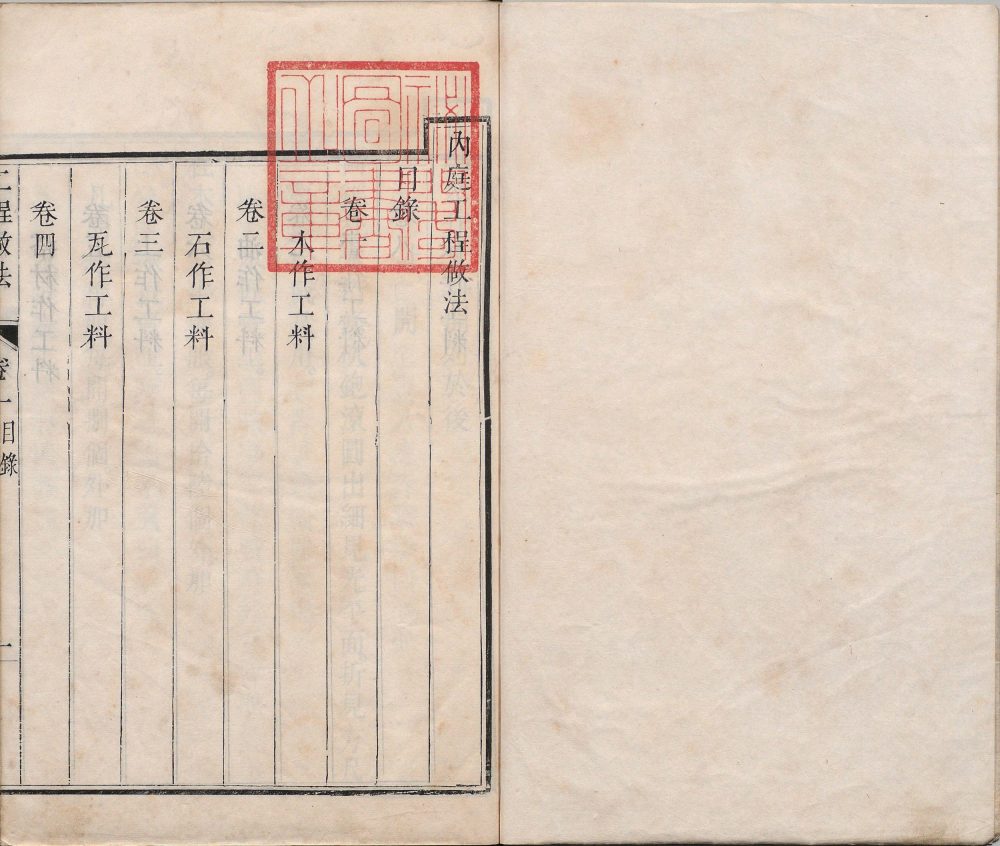 內庭工程做法
目錄
卷一
木作工料
卷二
石作工料
卷三
瓦作工料
卷四
工程做法 卷一目錄 一